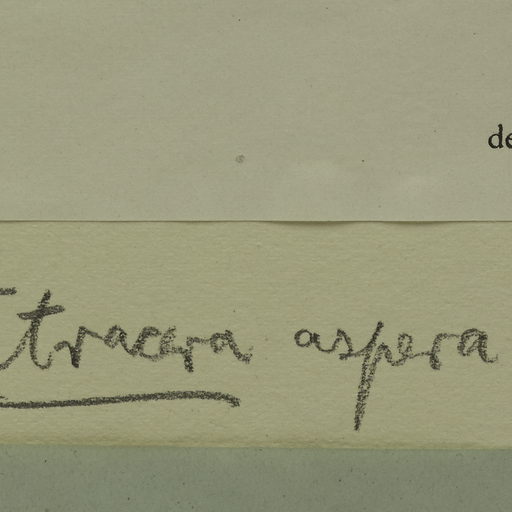 de
Etracera aspera